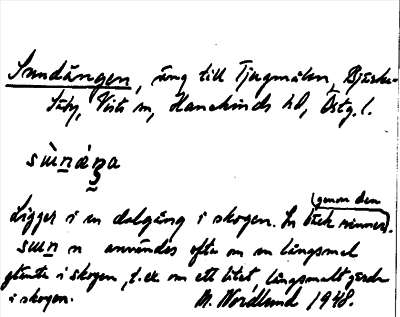 Sundängen, äng till Tjugmålen, Bjärka-
Säby, Vists sn, Hanekinds hd, Östg. l.
sùnáŋa
(genom den
Ligger i en dalgång i skogen. En bäck rinner).
sun n användes ofta om en långsmal
glänta i skogen, t.ex om ett litet, långsmalt gärde
i skogen. N. Nordlund 1948.